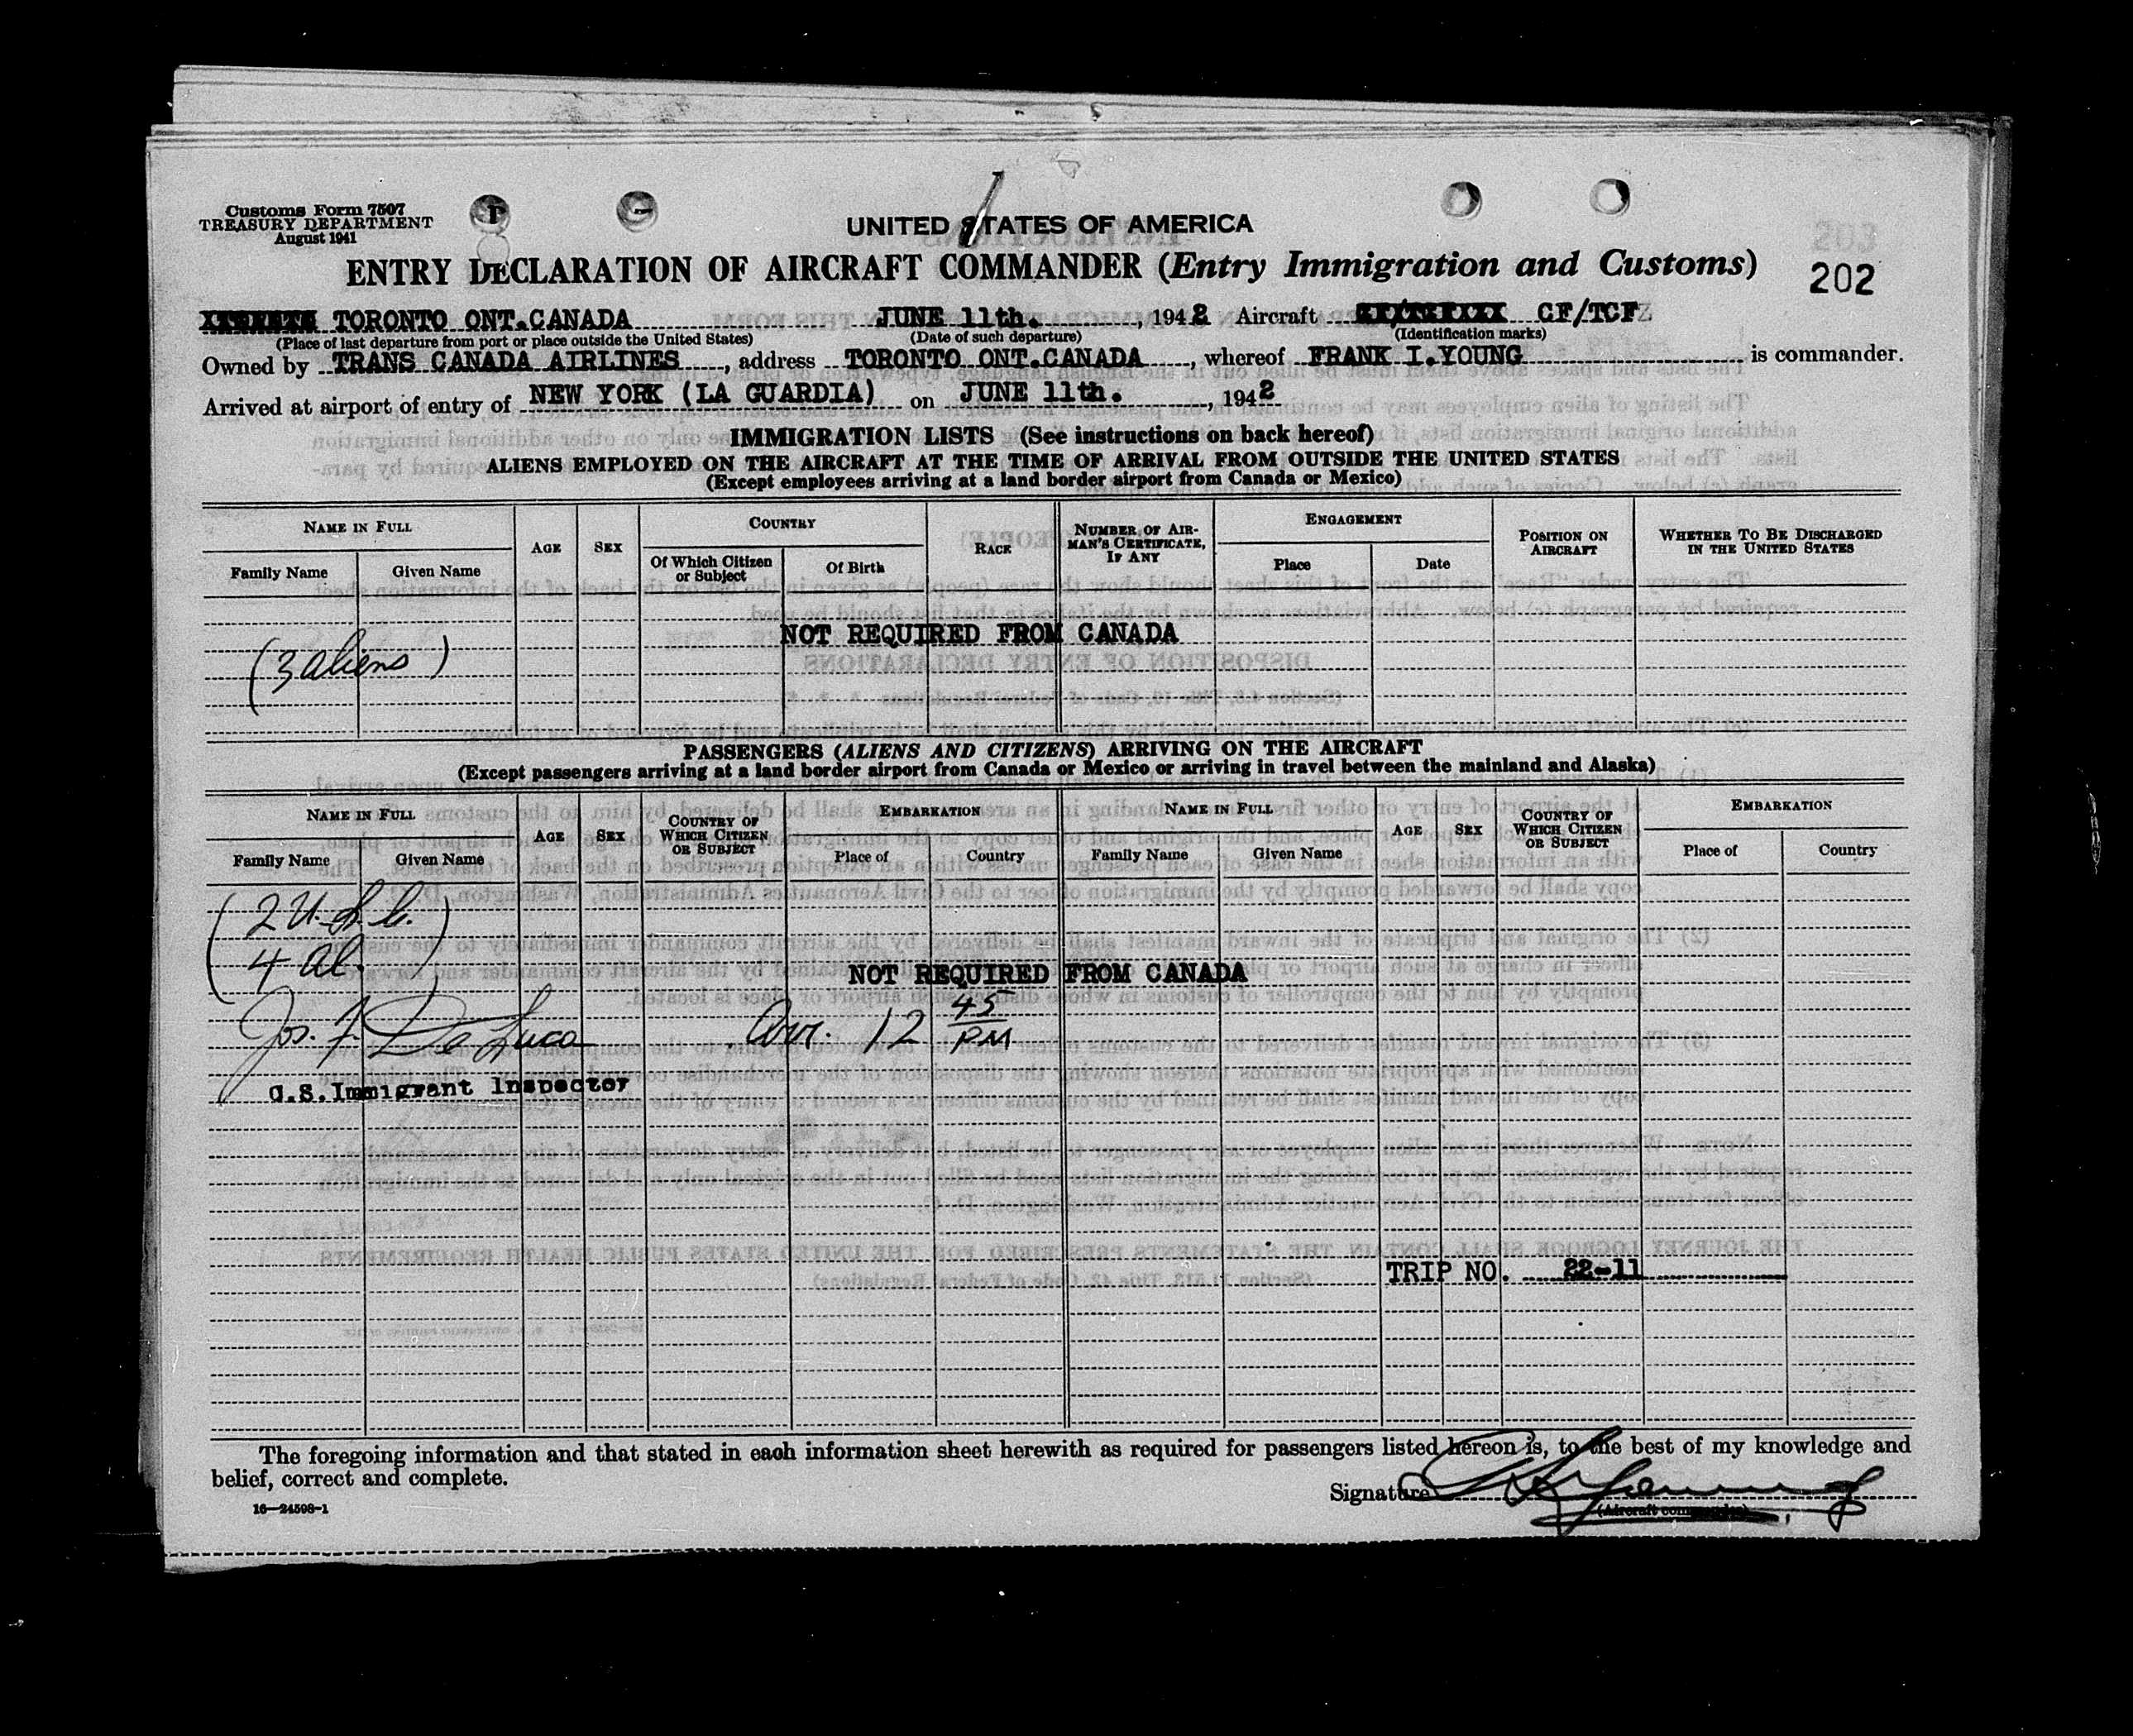 Customs Form 7507
TREASURY DEPARTMENT
August 1941
UNITED STATES OF AMERICA
ENTRY DECLARATION OF AIRCRAFT COMMANDER (Entry Immigration and Customs)
202
TORONTO ONT.CANADA JUNE 11th. , 1942 Aircraft CF/TCF
(Place of last departure from port or place outside the United States) (Date of such departure) (Identification marks)
Owned by TRANS CANADA AIRLINES , address TORONTO ONT.CANADA , whereof FRANK I.YOUNG is commander.
Arrived at airport of entry of NEW YORK (LA GUARDIA) on JUNE 11th. , 1942
IMMIGRATION LISTS (See instructions on back hereof)
ALIENS EMPLOYED ON THE AIRCRAFT AT THE TIME OF ARRIVAL FROM OUTSIDE THE UNITED STATES
(Except employees arriving at a land border airport from Canada or Mexico)
NAME IN FULL
Family Name Given Name
AGE
SEX
COUNTRY
Of Which Citizen or Subject
Of Birth
RACE
NUMBER OF AIRMAN'S CERTIFICATE, IF ANY
ENGAGEMENT
Place Date
POSITION ON AIRCRAFT
WHETHER TO BE DISCHARGED IN THE UNITED STATES
NOT REQUIRED FROM CANADA
(3 aliens)
PASSENGERS (ALIENS AND CITIZENS) ARRIVING ON THE AIRCRAFT
(Except passengers arriving at a land border airport from Canada or Mexico or arriving in travel between the mainland and Alaska)
NAME IN FULL
Family Name Given Name
AGE
SEX
COUNTRY OF WHICH CITIZEN OR SUBJECT
EMBARKATION
Place of Country
NAME IN FULL
Family Name Given Name
AGE
SEX
COUNTRY OF WHICH CITIZEN OR SUBJECT
EMBARKATION
Place of Country
(2 U.S.C.
4 al.)
NOT REQUIRED FROM CANADA
Jos. F. De Luca Arr. 12 45 PM
U.S.Immigrant Inspector
TRIP NO. 22-11
The foregoing information and that stated in each information sheet herewith as required for passengers listed hereon is, to the best of my knowledge and
belief, correct and complete.
Signature
(Aircraft commander)
16—24598-1